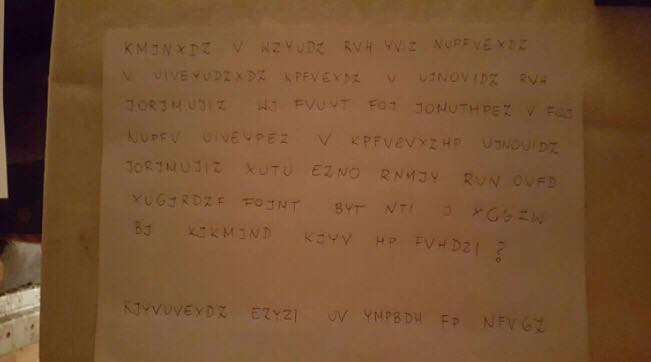 KMJNXDZ V WZYUDZ RVH YVIZ NUPFVEXDZ
V UIVEYUDZXDZ KPFVEXDZ U UJNOVIDZ RVH
JORJMUJIZ WJ FVUYT FQJ JOMUTHPEZ V FQJ
NUPFV UIVEYPEZ V KPFVEVXZHP UJNOUIDZ
JORJMUJIZ XUTU EZNO RNMJY RUN OUFD
XUGJRDZF FOJNT BYT NTI J XGGZW
BJ KJKMJND KJYV HP FVHDZI ?
RJYVUVEXDZ EZYZI UV YMPBDH FP NFVGZ